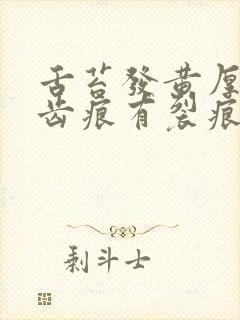 舌苔發黃厚
齒痕有裂痕
剩斗士